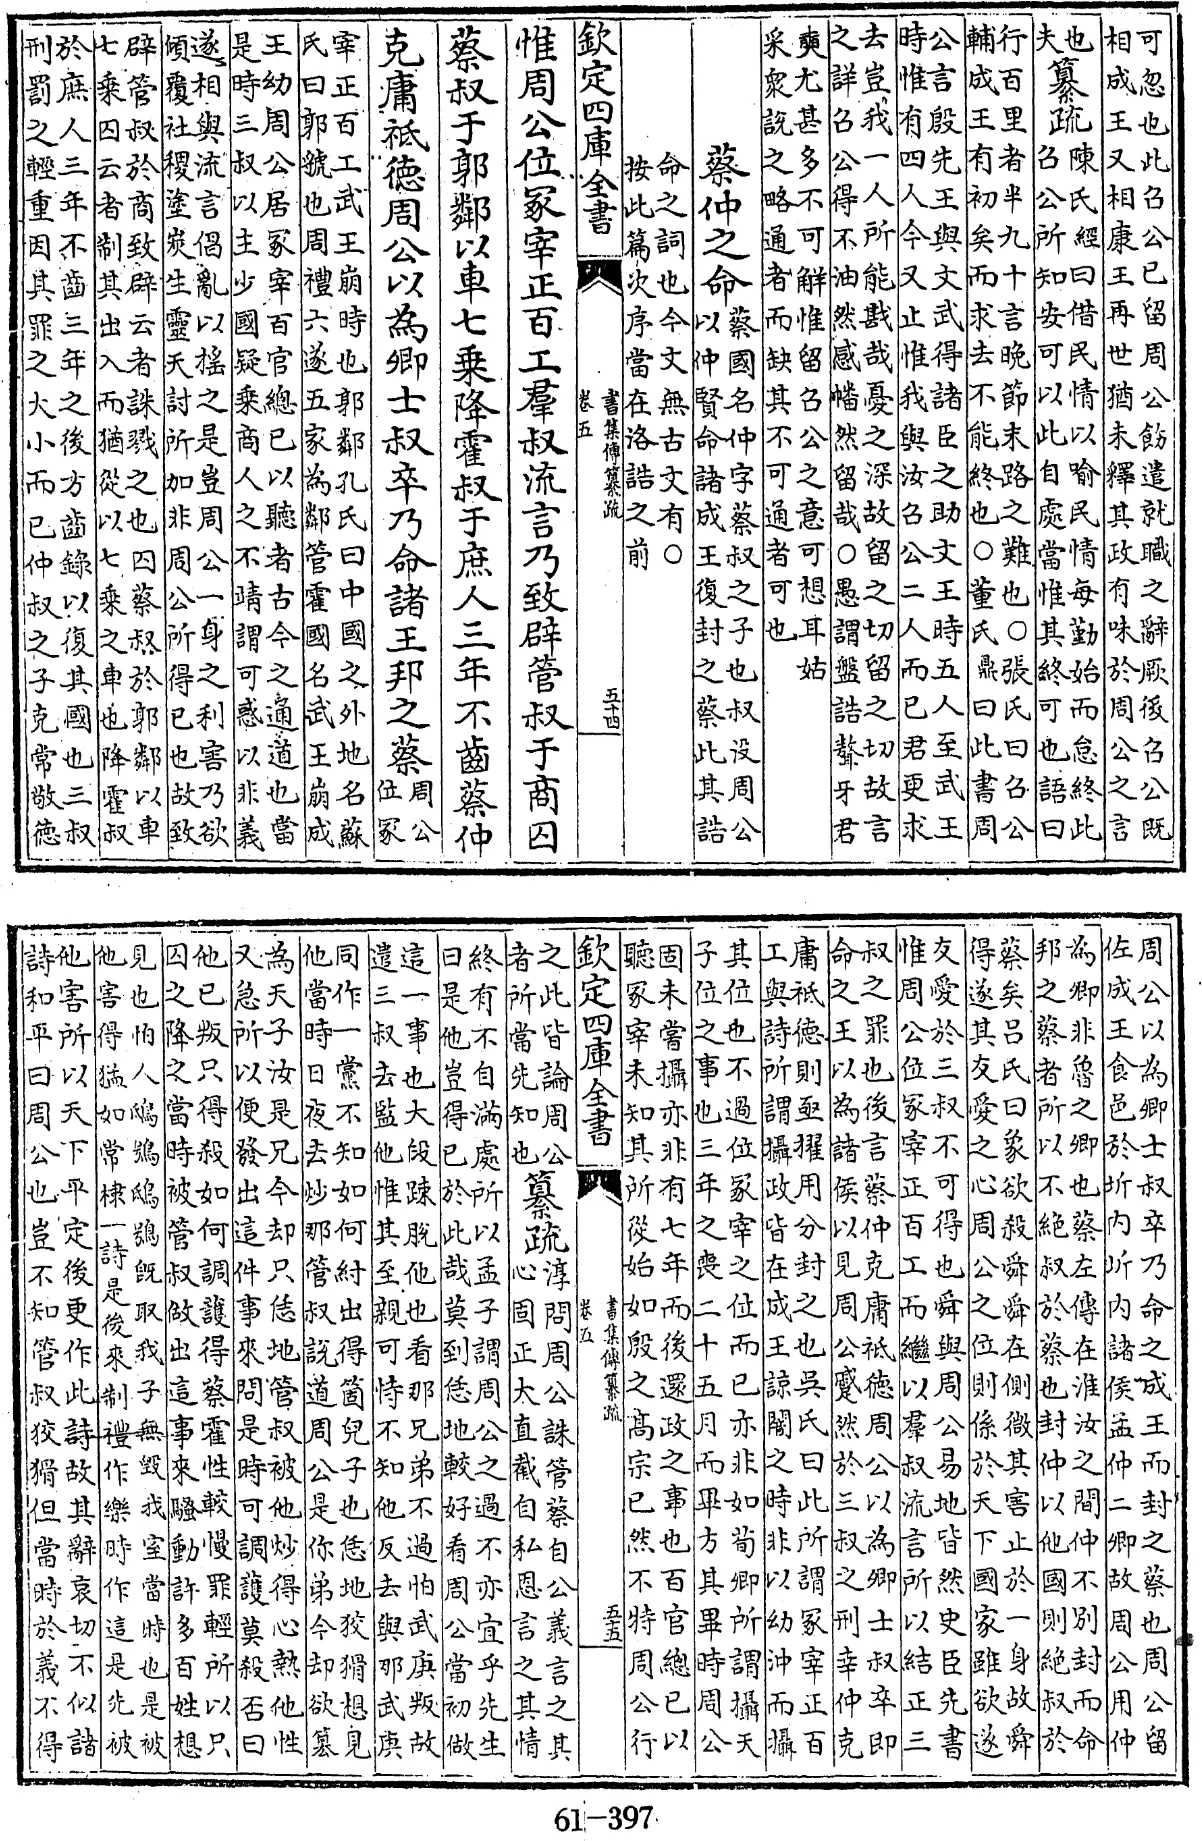 可忽也此召公已留周公飭遣就職之辭厥後召公既
相成王又相康王再世猶未釋其政有味於周公之言
也
夫
纂疏
陳氏經曰借民情以喻民情每勤始而怠終此
召公所知安可以此自處當惟其終可也語曰
行百里者半九十言晚節末路之難也○張氏曰召公
輔成王有初矣而求去不能終也○董氏鼎曰此書周
公言殷先王與文武得諸臣之助文王時五人至武王
時惟有四人今又止惟我與汝召公二人而已君更求
去豈我一人所能戡哉憂之深故留之切留之切故言
之詳召公得不油然感幡然留哉○愚謂盤誥聱牙君
奭尤甚多不可解惟留召公之意可想耳姑
采衆説之略通者而缺其不可通者可也
蔡仲之命
蔡國名仲字蔡叔之子也叔没周公
以仲賢命諸成王復封之蔡此其誥
命之詞也今文無古文有○
按此篇次序當在洛誥之前
欽定四庫全書
書集傳纂疏
卷五
五十四
惟周公位冢宰正百工羣叔流言乃致辟管叔于商囚
蔡叔于郭鄰以車七乘降霍叔于庶人三年不齒蔡仲
克庸祗德周公以為卿士叔卒乃命諸王邦之蔡
周公
位冢
宰正百工武王崩時也郭鄰孔氏曰中國之外地名蘇
氏曰郭虢也周禮六遂五家為鄰管霍國名武王崩成
王幼周公居冢宰百官總已以聽者古今之通道也當
是時三叔以主少國疑乘商人之不靖謂可惑以非義
遂相與流言倡亂以搖之是豈周公一身之利害乃欲
傾覆社稷塗炭生靈天討所加非周公所得已也故致
辟管叔於商致辟云者誅戮之也囚蔡叔於郭鄰以車
七乘囚云者制其出入而猶從以七乘之車也降霍叔
於庶人三年不齒三年之後方齒錄以復其國也三叔
刑罰之輕重因其罪之大小而已仲叔之子克常敬德
周公以為卿士叔卒乃命之成王而封之蔡也周公留
佐成王食邑於圻内圻内諸侯孟仲二卿故周公用仲
為卿非魯之卿也蔡左傳在淮汝之間仲不别封而命
邦之蔡者所以不絶叔於蔡也封仲以他國則絶叔於
蔡矣吕氏曰象欲殺舜舜在側微其害止於一身故舜
得遂其友愛之心周公之位則係於天下國家雖欲遂
友愛於三叔不可得也舜與周公易地皆然史臣先書
惟周公位冢宰正百工而繼以羣叔流言所以結正三
叔之罪也後言蔡仲克庸祗德周公以為卿士叔卒即
命之王以為諸侯以見周公蹙然於三叔之刑幸仲克
庸祗德則亟擢用分封之也吳氏曰此所謂冢宰正百
工與詩所謂攝政皆在成王諒闇之時非以幼沖而攝
其位也不過位冢宰之位而已亦非如荀卿所謂攝天
子位之事也三年之喪二十五月而畢方其畢時周公
固未嘗攝亦非有七年而後還政之事也百官總已以
聽冢宰未知其所從始如殷之高宗已然不特周公行
欽定四庫全書
書集傳纂疏
卷五
五十五
之此皆論周公
者所當先知也
纂疏
淳問周公誅管蔡自公義言之其
心固正大直截自私恩言之其情
終有不自滿處所以孟子謂周公之過不亦宜乎先生
曰是他豈得已於此哉莫到恁地較好看周公當初做
這一事也大段疎脱他也看那兄弟不過怕武庚叛故
遣三叔去監他惟其至親可恃不知他反去與那武庚
同作一黨不知如何紂出得箇兒子也恁地狡猾想見
他當時日夜去炒那管叔説道周公是你弟今却欲篡
為天子汝是兄今却只恁地管叔被他炒得心熱他性
又急所以便發出這件事來問是時可調護莫殺否曰
他已叛只得殺如何調護得蔡霍性較慢罪輕所以只
囚之降之當時被管叔做出這事來騷動許多百姓想
見也怕人鴟鴞鴟鴞既取我子無毁我室當時也是被
他害得猛如常棣一詩是後來制禮作樂時作這是先被
他害所以天下平定後更作此詩故其辭哀切不似諸
詩和平曰周公也豈不知管叔狡猾但當時於義不得
61-397